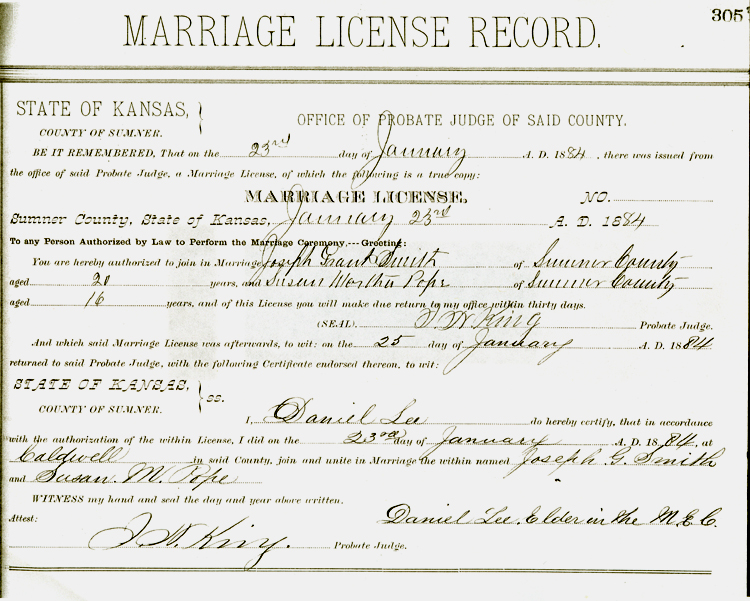 305
MARRIAGE LICENSE RECORD.
STATE OF KANSAS,
COUNTY OF SUMNER.
OFFICE OF PROBATE JUDGE OF SAID COUNTY.
BE IT REMEMBERED, That on the 23rd day of January A. D. 1884, there was issued from
the office of said Probate Judge, a Marriage License, of which the following is a true copy:
MARRIAGE LICENSE. NO.
Sumner County, State of Kansas, January 23rd A. D. 1884
To any Person Authorized by Law to Perform the Marriage Ceremony,---Greeting:
You are hereby authorized to join in Marriage Joseph Grant Smith of Sumner County
aged 20 years, and Susan Martha Pope of Sumner County
aged 16 years, and of this License you will make due return to my office within thirty days.
(SEAL). J W King Probate Judge.
And which said Marriage License was afterwards, to wit: on the 25 day of January A. D. 1884
returned to said Probate Judge, with the following Certificate endorsed thereon, to wit:
STATE OF KANSAS,
COUNTY OF SUMNER. ss.
I, Daniel Lee do hereby certify, that in accordance
with the authorization of the within License, I did on the 23rd day of January A. D. 1884, at
Caldwell in said County, join and unite in Marriage the within named Joseph G. Smith
and Susan. M. Pope
WITNESS my hand and seal the day and year above written.
Attest: Daniel Lee. Elder in the M. E. C.
J. W. King. Probate Judge.